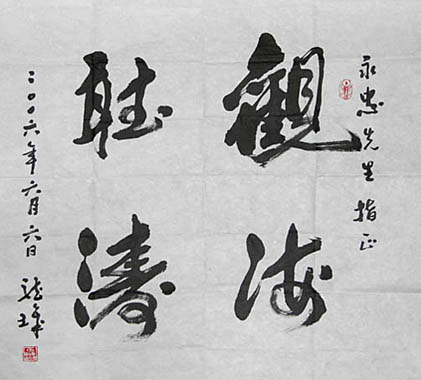 永忠先生指正
觀海
聽濤
二〇〇六年六月六日